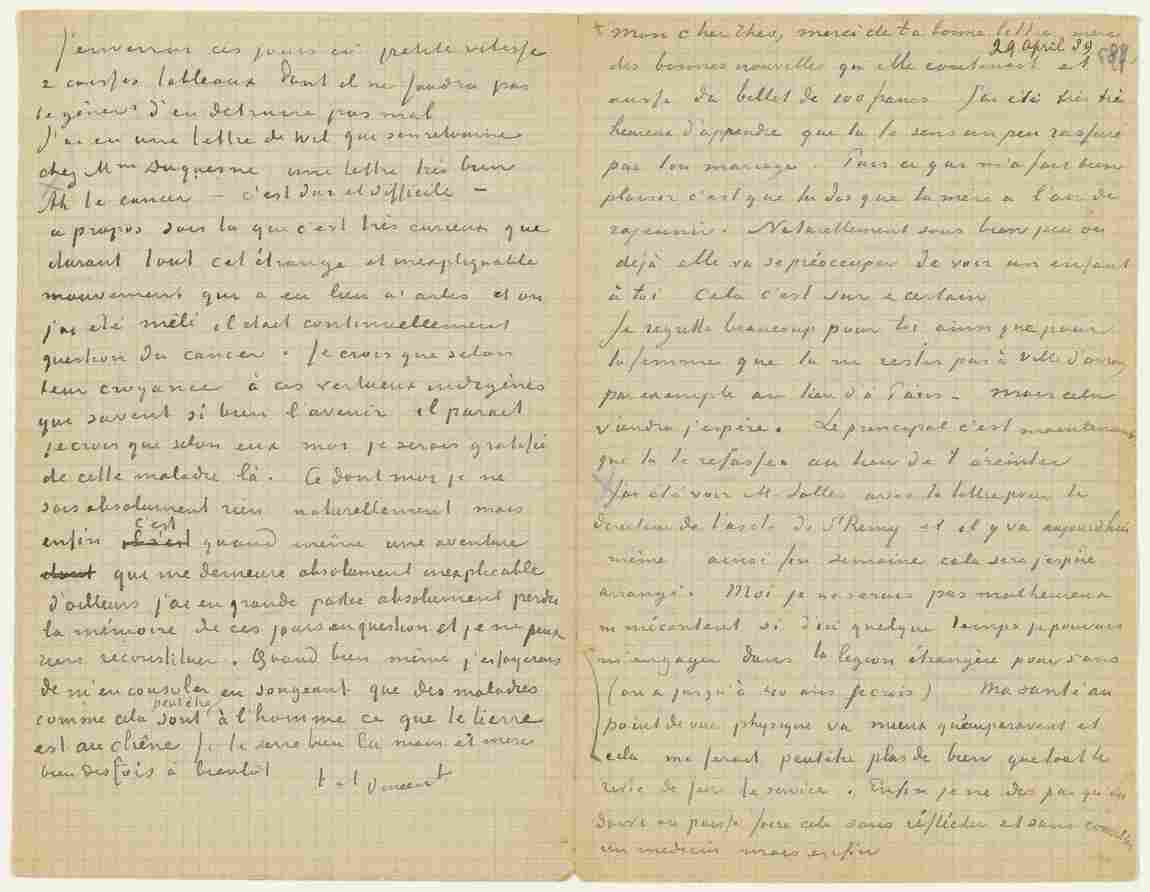 J'enverrai ces jours ci petite vitesse
2 caisses tableaux dont il ne faudra pas
te gêner d'en détruire pas mal
J'ai eu une lettre de Wil qui s'en retourne
chez Mme Duquesne une lettre très bien
Ah le cancer – c'est dur et difficile –
a propos sais tu que c'est très curieux que
durant tout cet étrange et inexpliquable
mouvement qui a eu lieu à Arles et ou
j'ai été mêlé il etait continuellement
question du cancer. Je crois que selon
leur croyance à ces vertueux indigènes
qui savent si bien l'avenir il parait
je crois que selon eux moi je serais gratifié
de cette maladie là. Ce dont moi je ne
sais absolument rien naturellement mais
c'est
enfin quand même une aventure
qui me demeure absolument inexplicable
d'ailleurs j'ai en grande partie absolument perdu
la mémoire de ces jours en question et je ne peux
rien reconstituer. Quand bien même j'essayerais
de m'en consoler en songeant que des maladies
peutêtre
comme cela sont à l'homme ce que le lierre
est au chêne Je te serre bien la main et merci
bien des fois à bientôt
t. à t. Vincent
Mon cher Theo, merci de ta bonne lettre merci
29 April 89
des bonnes nouvelles qu'elle contenait et
aussi du billet de 100 francs. J'ai été très très
heureux d'apprendre que tu te sens un peu rassuré
par ton mariage. Puis ce qui m'a fait bien
plaisir c'est que tu dis que la mère a l'air de
rajeunir. Naturellement sous bien peu ou
déjà elle va se préoccuper de voir un enfant
à toi Cela c'est sûr & certain
Je regrette beaucoup pour toi ainsi que pour
ta femme que tu ne restes pas à Ville d'avray
par exemple au lieu d'à Paris – mais cela
viendra j'espère. Le principal c'est maintenant
que tu te refasses au lieu de t'éreinter
J'ai été voir M. Salles avec ta lettre pour le
directeur de l'asile de St Remy et il y va aujourd'hui
même ainsi fin semaine cela sera j'espère
arrangé. Moi je ne serais pas malheureux
ni mécontent si d'ici quelque temps je pouvais
m'engager dans la légion étrangère pour 5 ans
(on a jusqu'à 40 ans je crois) Ma santé au
point de vue physique va mieux qu'auparavant et
cela me ferait peutêtre plus de bien que tout le
reste de faire le service. Enfin je ne dis pas qu'on
doive ou puisse faire cela sans réfléchir et sans consulter
un medecin mais enfin